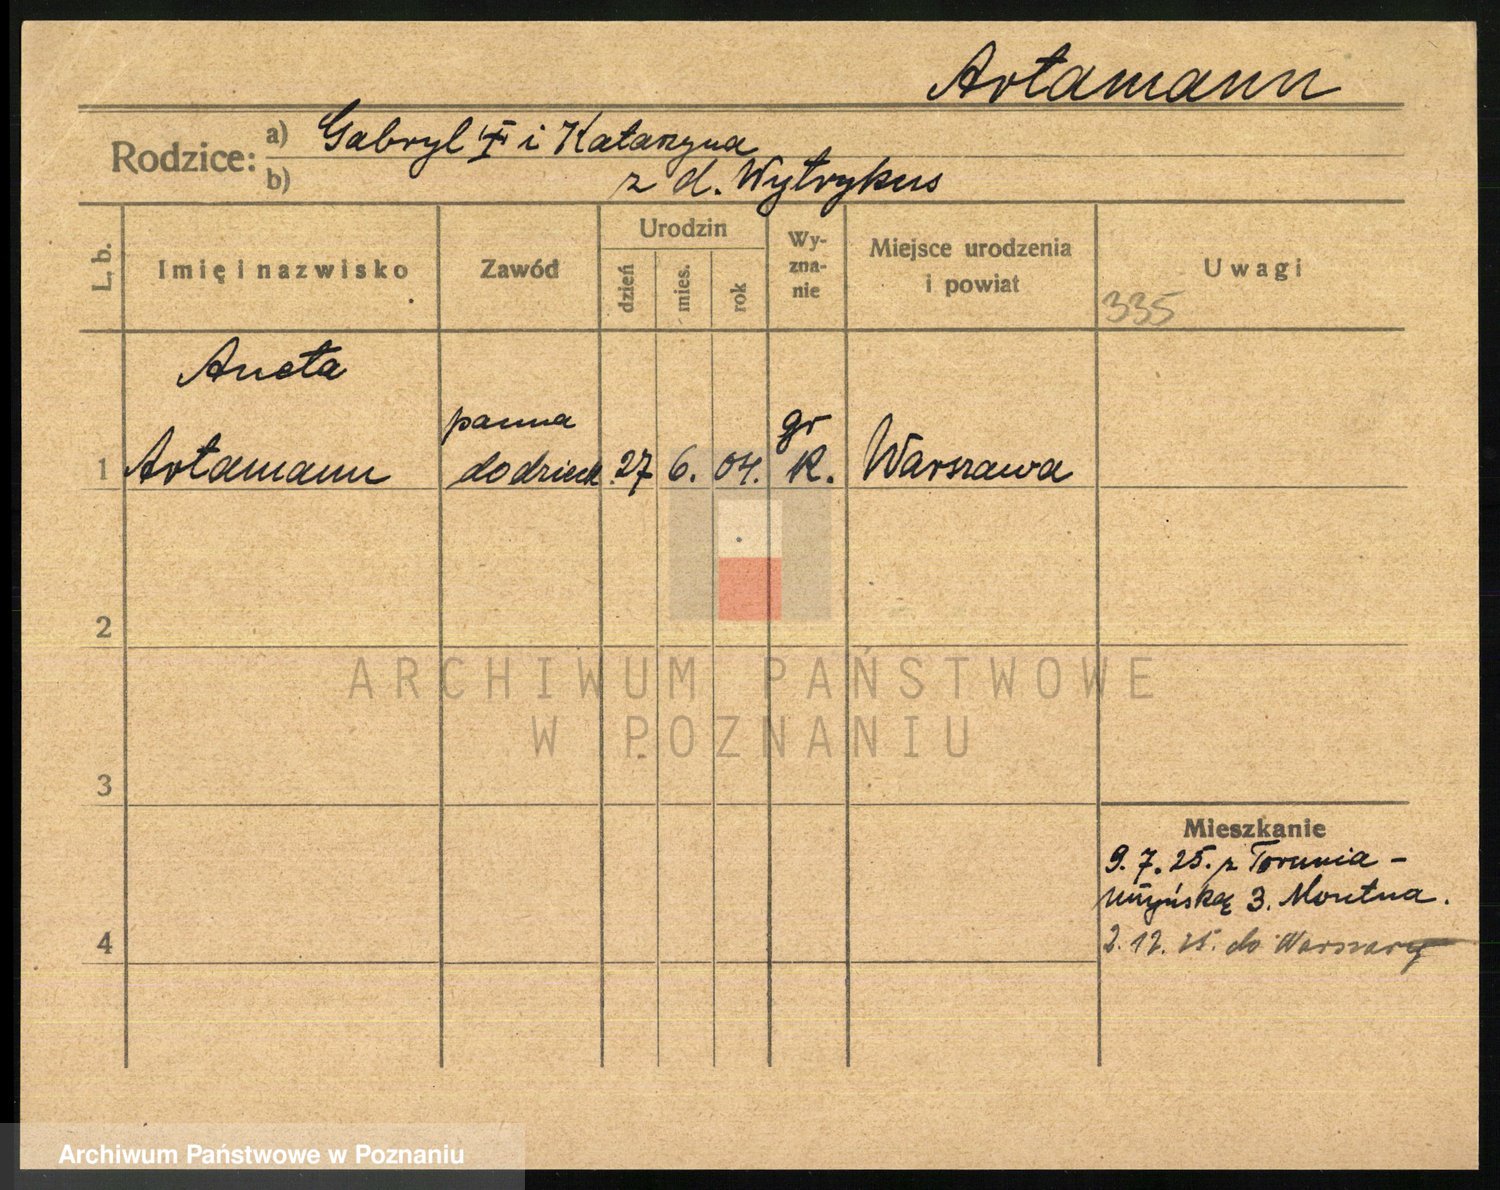 Artamann
Rodzice: a) Gabryl i Katarzyna
b) z d. Wytrykus
L. b.
Imię i nazwisko
Zawód
Urodzin
dzień
mies.
rok
Wy-
zna-
nie
Miejsce urodzenia
i powiat
Uwagi
335
Aneta
panna
gr
1 Artamann do dzieck 27 6. 04. K. Warszawa
2
3
4
ARCHIWUM PAŃSTWOWE
W POZNANIU
Mieszkanie
9.7.25. z Torunia –
3.
2.12.25. do Warszawy
Archiwum Państwowe w Poznaniu